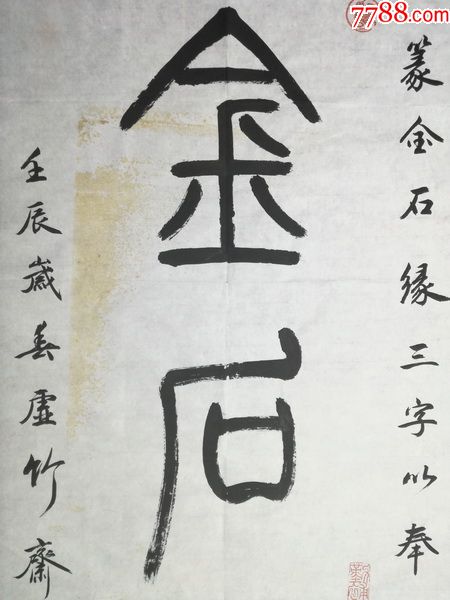 7788.com
篆金石缘三字以奉
金石
壬辰岁春虚竹斋